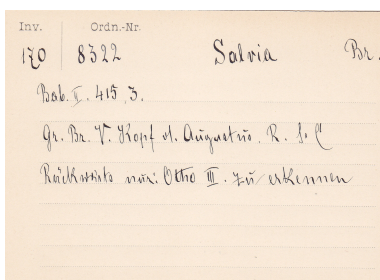 Inv. Ordn.-Nr.
170 8322 Salvia Br.
Bab. II. 415, 3.
Gr. Br. V. Kopf d. Augustus. R. S. C
Rückwärts nur: Otho III. zu erkennen